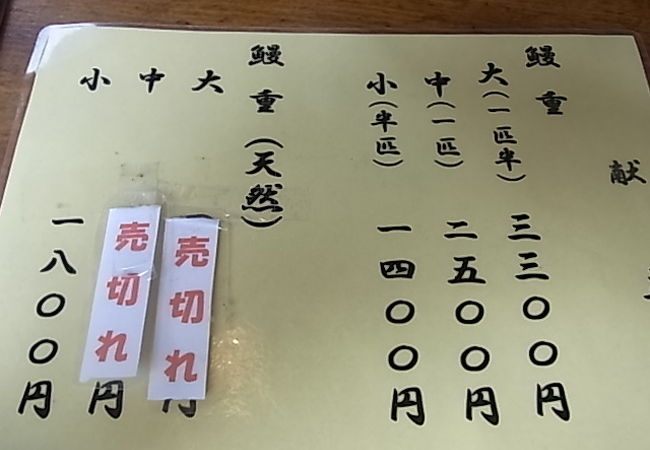 献
鰻重
大(一匹半) 三三〇〇円
中(一匹) 二五〇〇円
小(半匹) 一四〇〇円
鰻重(天然)
大 売切れ 円
中 売切れ 円
小 一八〇〇円